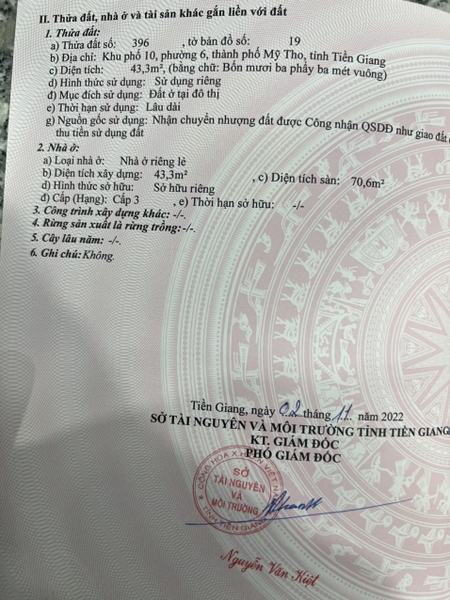 II. Thửa đất, nhà ở và tài sản khác gắn liền với đất
1. Thửa đất:
a) Thửa đất số: 396 , tờ bản đồ số: 19
b) Địa chỉ: Khu phố 10, phường 6, thành phố Mỹ Tho, tỉnh Tiền Giang
c) Diện tích: 43,3m², (bằng chữ: Bốn mươi ba phẩy ba mét vuông)
d) Hình thức sử dụng: Sử dụng riêng
đ) Mục đích sử dụng: Đất ở tại đô thị
e) Thời hạn sử dụng: Lâu dài
g) Nguồn gốc sử dụng: Nhận chuyển nhượng đất được Công nhận QSDĐ như giao đất
thu tiền sử dụng đất
2. Nhà ở:
a) Loại nhà ở: Nhà ở riêng lẻ
b) Diện tích xây dựng: 43,3m² , c) Diện tích sàn: 70,6m²
d) Hình thức sở hữu: Sở hữu riêng
đ) Cấp (Hạng): Cấp 3 , e) Thời hạn sở hữu: -/-
3. Công trình xây dựng khác: -/-.
4. Rừng sản xuất là rừng trồng: -/-.
5. Cây lâu năm: -/-.
6. Ghi chú: Không.
Tiền Giang, ngày 02 tháng 11 năm 2022
SỞ TÀI NGUYÊN VÀ MÔI TRƯỜNG TỈNH TIỀN GIANG
KT. GIÁM ĐỐC
PHÓ GIÁM ĐỐC
SỞ
TÀI NGUYÊN
VÀ
MÔI TRƯỜNG
TỈNH TIỀN GIANG
Nguyễn Văn Kiệt